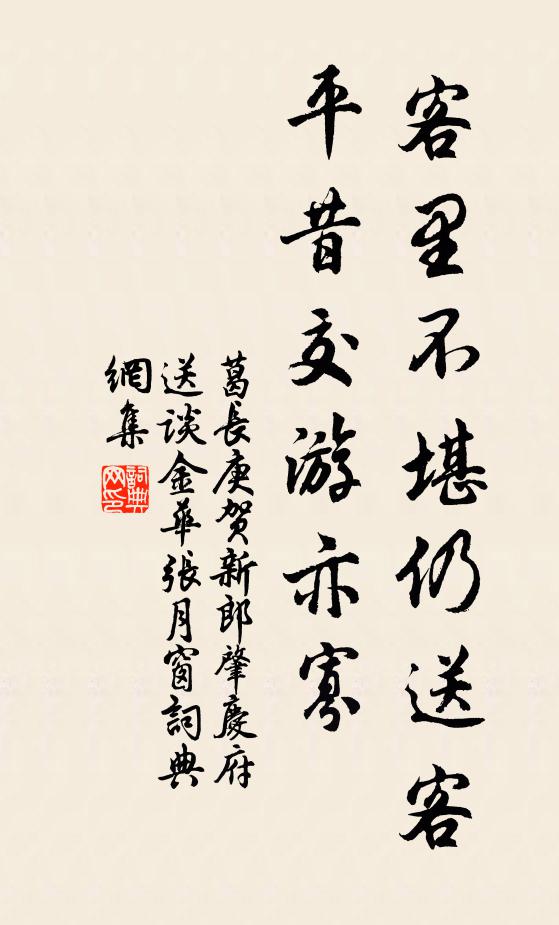 客里不堪仍送客
平昔交游亦寡
葛長庚贺新郎肇慶府
送谈金華張月窗詞典
網集
詞典
网印